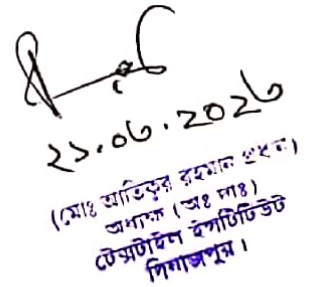 ২১.০৬.২০২৬
(মোঃ আতিকুর রহমান প্রধান)
অধ্যক্ষ (অঃ দাঃ)
টেক্সটাইল ইন্সটিটিউট
দিনাজপুর।